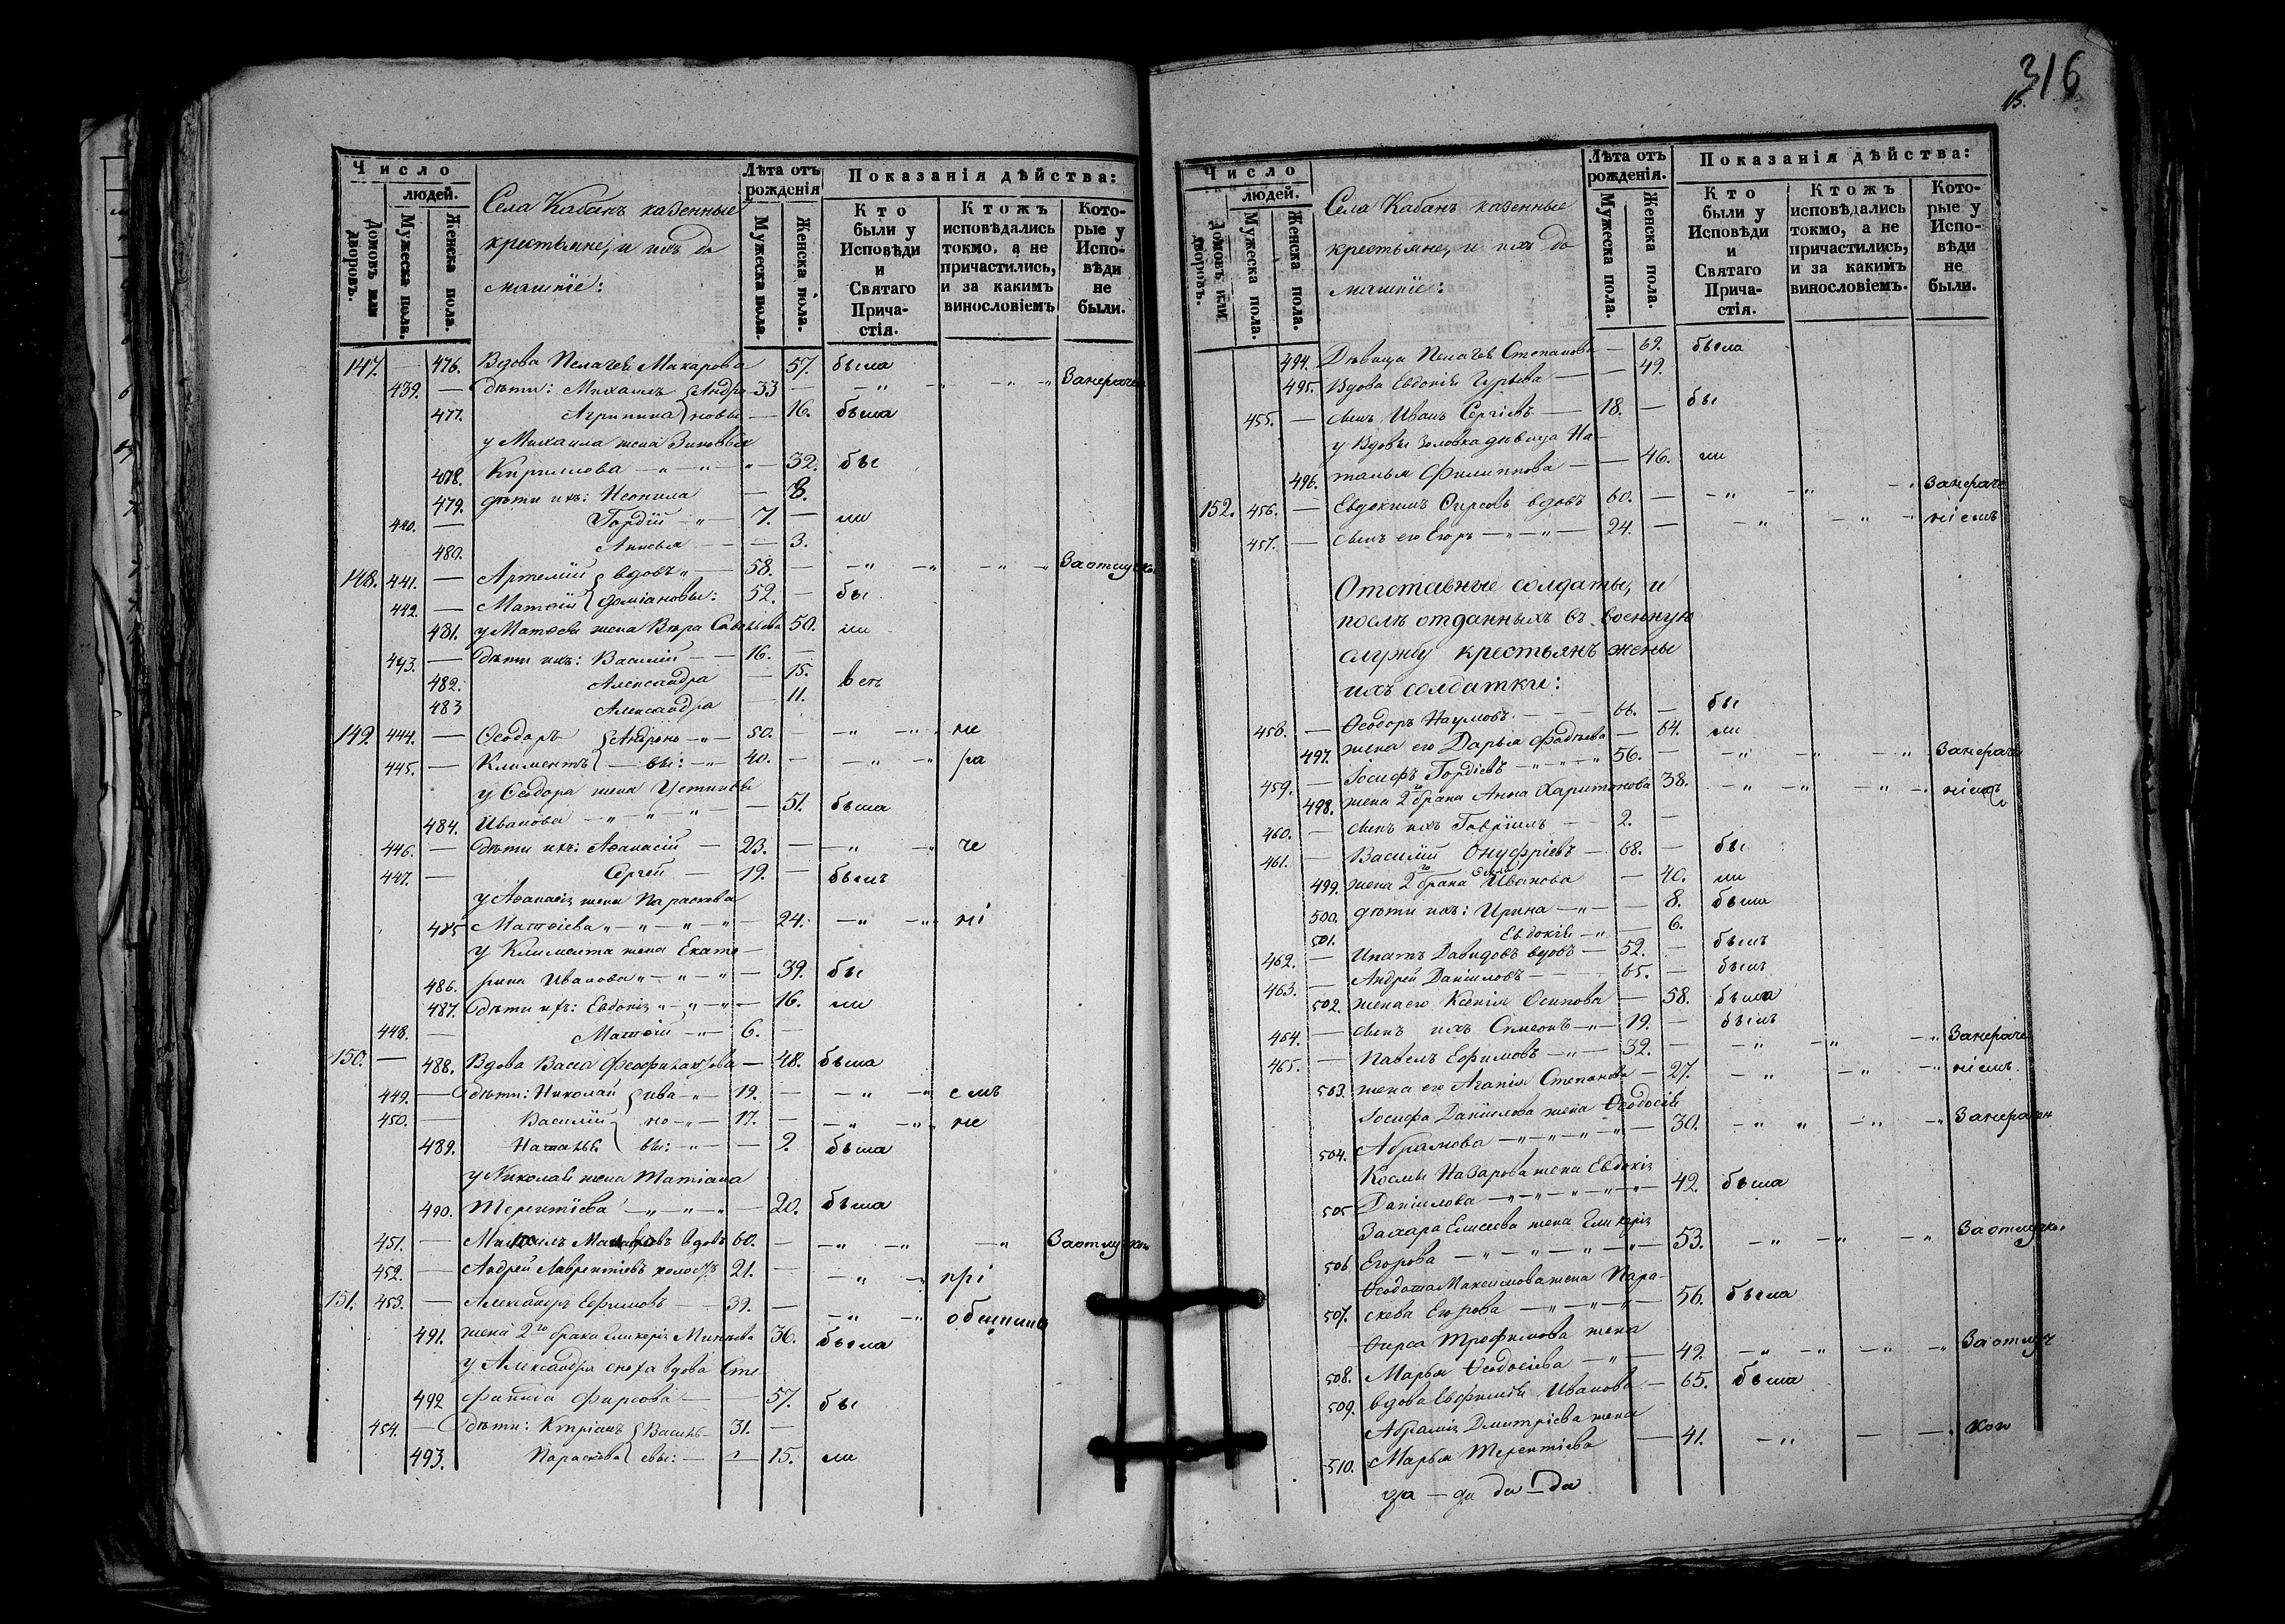 316
15.
Число
людей.
Домовъ или дворовъ.
Мужеска пола.
Женска пола.
Села Кабанъ казенные
крестьяне, и ихъ до
машніе:
Лѣта отъ рожденія
Мужеска пола.
Женска пола.
Показанія дѣйства:
Кто были у Исповѣди и Святаго Прича-стія.
Ктожъ исповѣдались токмо, а не причастились, и за какимъ винословіемъ
Кото-рые у Испо-вѣди не были.
147. — 476. Вдова Пелагея Макарова 57. была
439. — дѣти: Михаилъ Андро 33 — „ — „ — „ — „
477. Агрипина новы — 16. была
у Михаила жена Зиновья
478. Кирилова — „ — „ — 32. бы
479. дѣти ихъ: Неонила — 8.
440. — Гордій — „ — 7. — ли
480. Анисья — — 3.
148. 441. — Артемій вдовъ „ — 58. — — „ — „ — „ — „
442. — Матѳій Доміановы: 52. — бы
481. у Матѳея жена Вѣра Савельева 50. ли
443. — дѣти ихъ: Василій — — 16. —
482. Александра — 15. всѣ
483 Александра — 11.
149. 444. — Ѳеодоръ Андроно — „ — 50. — — „ — „ не
445. — Климентъ — вы: — „ 40. — — „ — „ ра
у Ѳеодора жена Устинья
484. Иванова — „ — „ — „ — 51. была
446. — дѣти ихъ: Аѳанасій — 23. — — „ — „ че
447. — Сергей — 19. — былъ
у Аѳанасія жена Параскева
485 Матѳіева „ — „ — „ — „ — 24. — „ — „ ні
у Климента жена Екате —
486. рина Иванова „ — „ — „ — 39. бы
487. дѣти ихъ: Евдокія „ — „ — „ — 16. ли
448. — Матѳій — „ — 6. —
150. — 488. Вдова Васса Феофилактова — 48. была
449. — дѣти: Николай Ива — „ — 19. — — „ — „ емъ
450. — Василій но — „ — 17. — — „ — „ не
489. Наталья вы: — „ — — 2. была
у Николая жена Татіана
490. Терентіева — „ — „ — „ — 20. была
451. — вдовъ 60. — — „ — „ — „
452. — Андрей Лаврентіевъ холостъ 21. — — „ — „ прі
151. 453. — Александръ Ефимовъ — — 39. — — „ — „
491. жена 2го брака Гликерія 36. была
у Александра сноха вдова Сте
492 фанида Фирсова — — 57. бы
454. — дѣти: Кипріанъ Василь- 31. —
493. Параскева евы: — — 15. ли
Число
людей.
Домовъ или дворовъ.
Мужеска пола.
Женска пола.
Села Кабанъ казенные
крестьяне, и ихъ до
машніе:
Лѣта отъ рожденія.
Мужеска пола.
Женска пола.
Показанія дѣйства:
Кто были у Исповѣди и Святаго Прича-стія.
Ктожъ исповѣдались токмо, а не причастились, и за какимъ винословіемъ.
Кото-рые у Испо-вѣди не были.
494. Дѣвица Пелагея Степанова — 69. была
495. Вдова Евдокія Гурьева — — 49.
455. — сынъ Иванъ Сергіевъ — 18. — бы
у вдовы золовка дѣвица На-
496. талья Филиппова — — 46. ли
152. 456. — Евдокимъ Ѳирсовъ вдовъ 60. — — „ — „ — „ Занераче
457. — сынъ его Егоръ — „ — „ — 24. — — „ — „ — ніемъ
Отставные солдаты, и
послѣ отданныхъ въ военную
службу крестьянъ жены
ихъ солдатки:
458. — Ѳеодоръ Наумовъ — — — 66. — бы
497. жена его Дарья Фадѣева — 64. ли
459. — Іосифъ Гордіевъ — „ — „ — „ 56. — — „ — „ — „ Занераче
498. жена 2го брака Анна Харитонова 38. — „ — „ — „ — ніемъ
460. — сынъ ихъ Гавріилъ — — 2. —
461. — Василій Онуфріевъ — 68. — бы
499. жена 2го брака Иванова — 40. ли
500. дѣти ихъ: Ирина — „ — — 8. была
501. Евдокія — „ — 6.
462. — Ипатъ Давидовъ вдовъ — 52. — былъ
463. — Андрей Даниловъ — — 65. — былъ
502. жена его Ксенія Осипова — 58. была
464. — сынъ ихъ Симеонъ — „ — 19. — былъ
465. — Павелъ Ефимовъ — „ — 32. — — „ — „ — „ Занераче
503. жена его Агапія Степанова — 27. — „ — „ — „ ніемъ.
Іосифа Данилова жена Ѳеодосія
504. Абрамова — „ — „ — „ — „ — 30. — „ „ — „ — „ Занерачен
Космы Назарова жена Евдокія
505 Данилова — „ — „ — „ — „ — 42. была
Захара Елисеева жена Гликерія
506 Егорова — „ — „ — „ — „ — 53. — „ — „ — „
Ѳеодота Максимова жена Пара-
507. скева Егорова — „ — „ — „ — 56. была
Ѳирса Трофимова жена
508. Марья Ѳеодосіева — „ — 49. — „ — „ — „ — „ Заотлуч
509. вдова Евфимія Иванова — 65. была
Абрамія Дмитріева жена
510. Марья Терентіева — 41. — „ — — кою